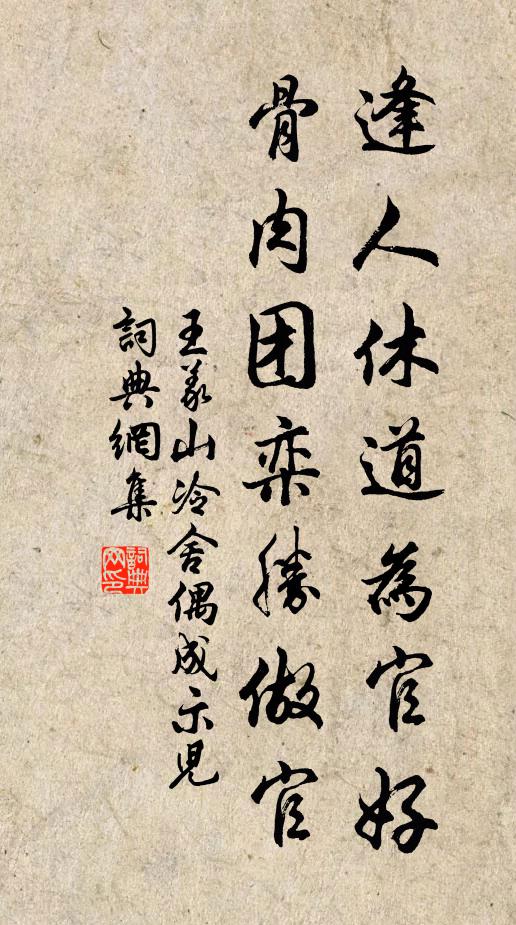 逢人休道為官好
骨肉团栾勝做官
王義山冷舍偶成示児
詞典網集
詞典網印